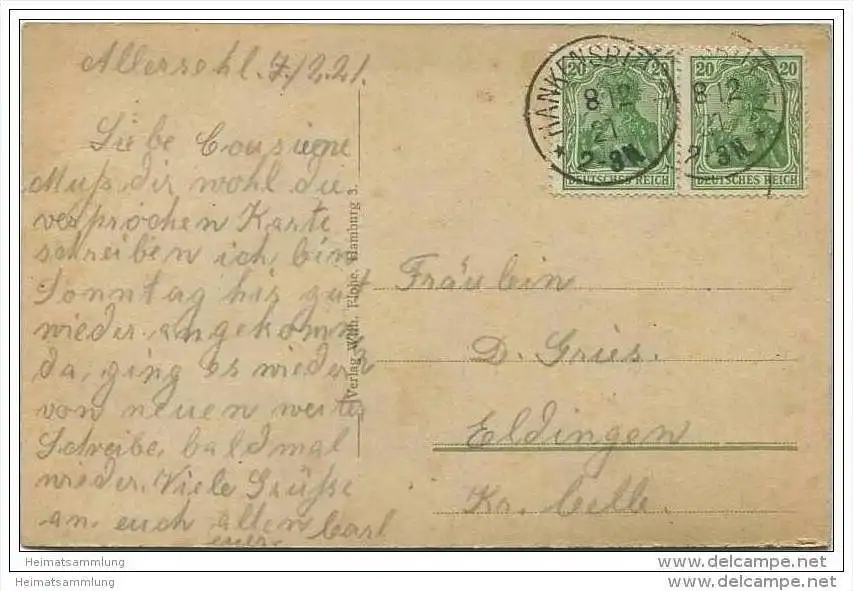 Allersehl. 7/12.21.
Liebe Cousiene
Muß dir wohl die
versprochen Karte
schreiben ich bin
Sonntag hir gut
wieder angekomm
da, ging es wieder
von neuen weiter
Schreibe, bald mal
wieder. Viele Grüße
an. euch allen
euer Carl
Verlag Wilh. Flohe, Hamburg 3.
HANKENSBÜTTEL
8 12
21
2-3N.
20 20
DEUTSCHES REICH
8 12
21
2-3N
20 20
DEUTSCHES REICH
Fräulein
D. Gries.
Eldingen
Kr. Celle.
Heimatsammlung
Heimatsammlung
www.delcampe.net
www.delcampe.net